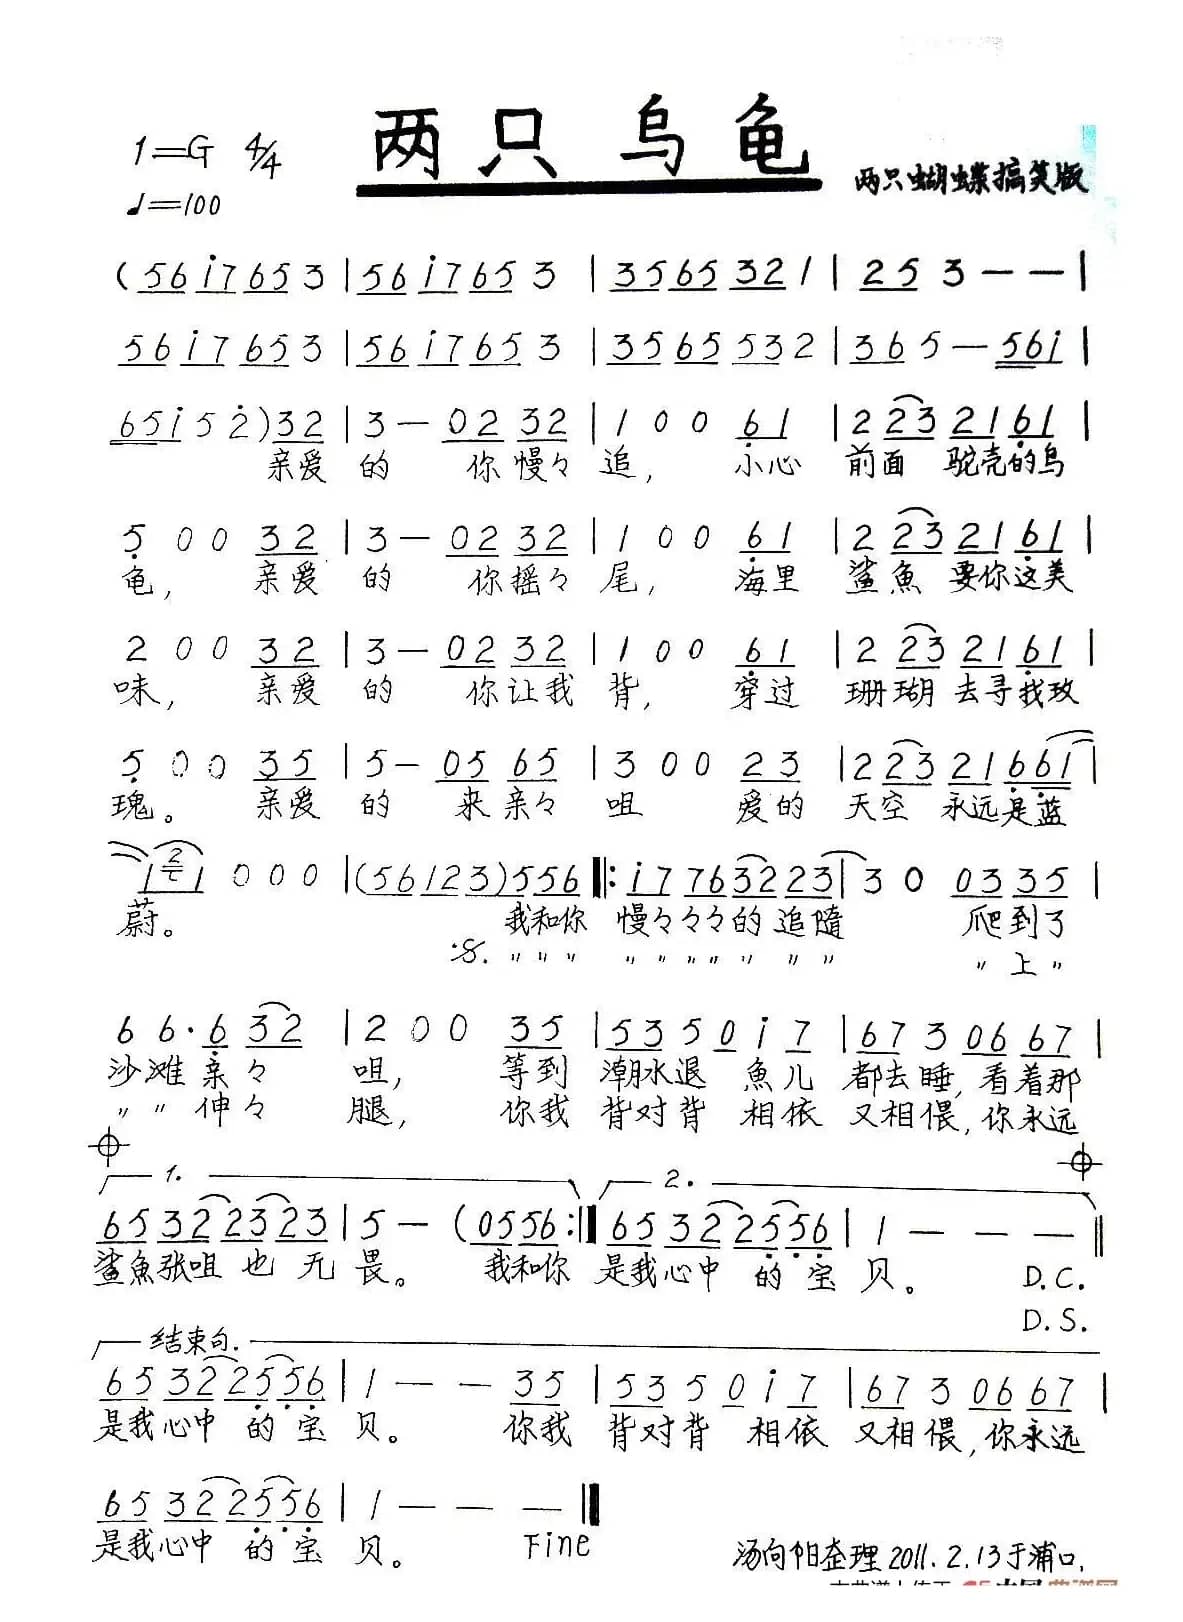 两只乌龟
1=G 4/4
两只蝴蝶搞笑版
♩=100
(56i7653 | 56i7653 | 3565321 | 253 - - |
56i7653 | 56i7653 | 3565532 | 365 - 56i |
65i52)32 | 3 - 0232 | 1 0 0 61 | 2 232161 |
亲爱 的 你慢々 追, 小心 前面 驼壳的乌
5 0 0 32 | 3 - 0232 | 1 0 0 61 | 2 232161 |
龟, 亲爱 的 你摇々 尾, 海里 鲨魚 要你这美
2 0 0 32 | 3 - 0232 | 1 0 0 61 | 2 232161 |
味, 亲爱 的 你让我 背, 穿过 珊瑚 去寻找玫
5 0 0 35 | 5 - 0565 | 3 0 0 23 | 2 2321661 |
瑰。 亲爱 的 来亲々 咀 爱的 天空 永远是蓝
1 1 0 0 0 | (56123)556 ‖: i77632223 | 3 0 0335 |
蔚。 我和你 慢々々々的 追随 爬到了
·S. 〃〃〃 〃〃〃〃〃 〃〃 〃上〃
6 6·632 | 2 0 0 35 | 5350i7 | 6730667 |
沙滩 亲々 咀, 等到 潮水退 魚儿 都去睡,看着那
〃〃伸々 腿, 你我 背对背 相依 又相偎,你永远
1. 2.
6532 2323 | 5 - (0556 :‖ 6532 2556 | 1 - - - ‖
鲨魚张咀 也 无 畏。 我和你 是我心中 的 宝 贝。 D.C.
D.S.
结束句.
6532 2556 | 1 - - 35 | 5350i7 | 6730667 |
是我心中 的 宝 贝。 你我 背对背 相依 又相偎,你永远
6532 2556 | 1 - - - ‖
是我心中 的 宝 贝. Fine 汤向阳歪理2011.2.13于浦口.